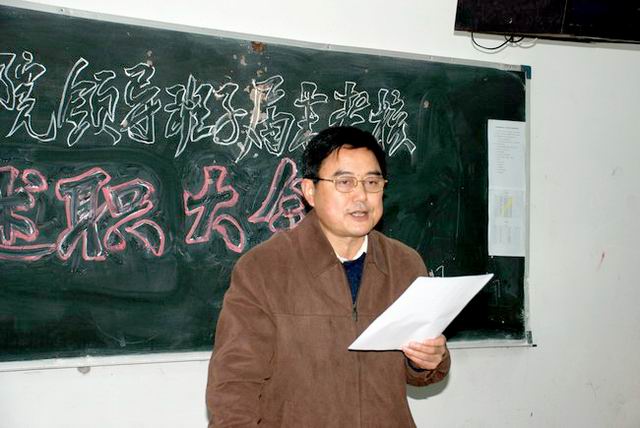 院领导班子届末考核
述职大会